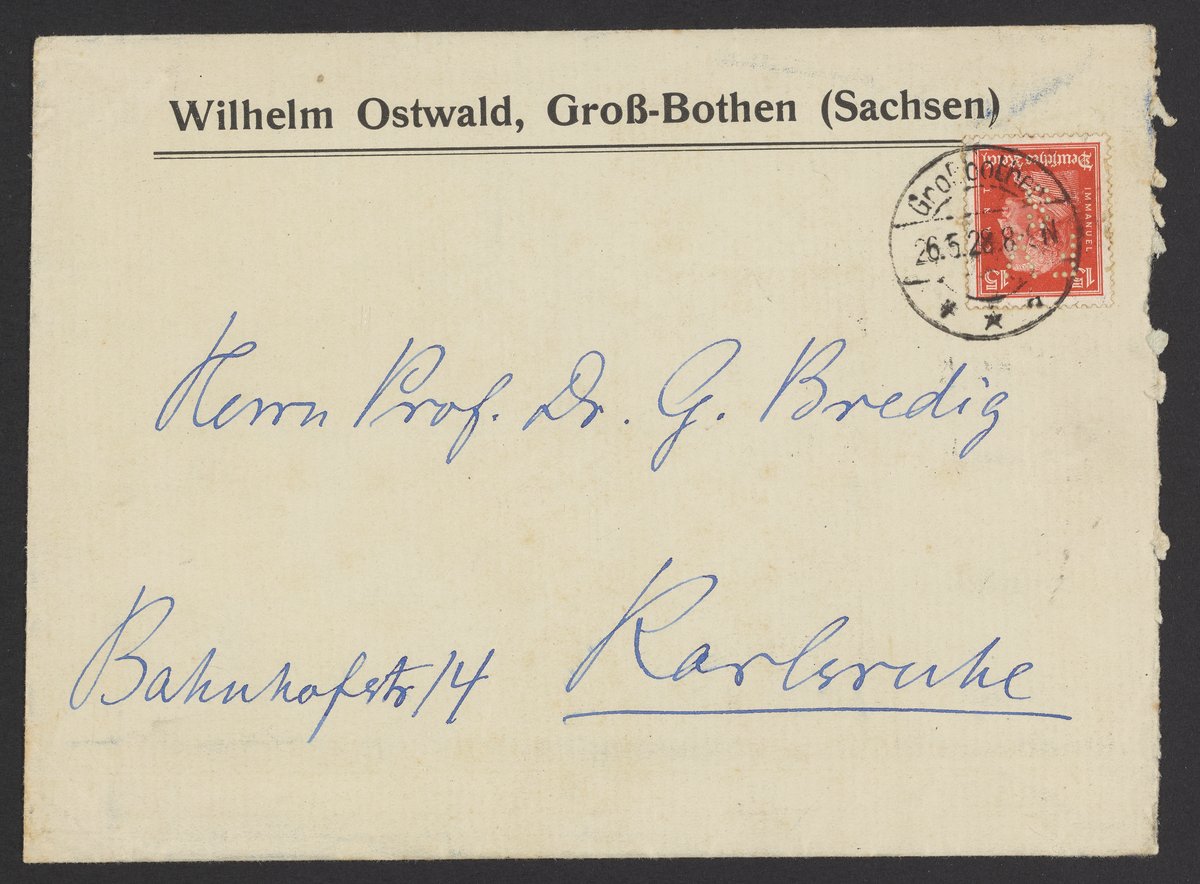 Wilhelm Ostwald, Groß-Bothen (Sachsen)
Deutsches Reich
IMMANUEL
15 15
Großbothen
26.5.28.8-N
a
Herrn Prof. Dr. G. Bredig
Bahnhofstr 14 Karlsruhe